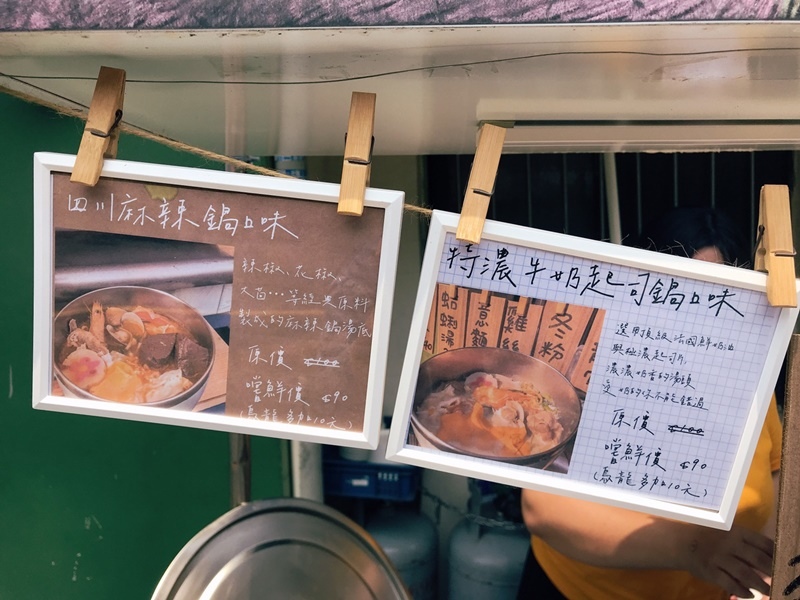 四川麻辣鍋口味
辣椒、花椒、
大茴…等經典原料
製成的麻辣鍋湯底
原價 $100
嚐鮮價 $90
(烏龍多加10元)
特濃牛奶起司鍋口味
選用頂級法國鮮奶油
與極濃起司片
濃濃奶香的湯頭
愛奶的你不能錯過
原價 $100
嚐鮮價 $90
(烏龍多加10元)
蛤蜊湯
意麵
雞絲
冬粉